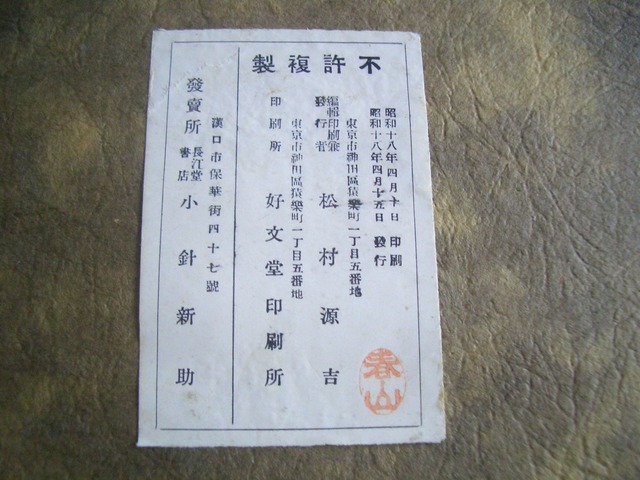 不許複製
昭和十八年四月十日 印刷
昭和十八年四月十五日 發行
東京市神田區猿樂町一丁目五番地
編輯印刷兼
發行者 松村源吉
東京市神田區猿樂町一丁目五番地
印刷所 好文堂印刷所
漢口市保華街四十七號
發賣所 長江堂書店 小針新助
春山